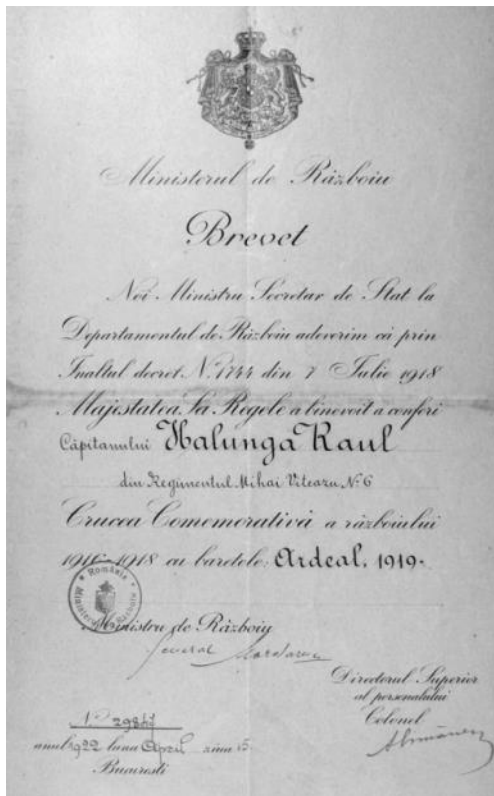 Ministerul de Războiu
Brevet
Noi Ministru Secretar de Stat la
Departamentul de Războiu adeverim că prin
Inaltul decret N. 1744 din 7 Iulie 1918
Majestatea Sa Regele a binevoit a conferi
Căpitanului Halunga Raul
din Regimentul Mihai Viteazu Nº 6
Crucea Comemorativă a războiului
1916-1918 cu baretele: Ardeal, 1919.
România
Ministru de Războiu
General
Directorul Superior
al personalului
Colonel
anul 1922 luna April ziua 15
Bucuresti